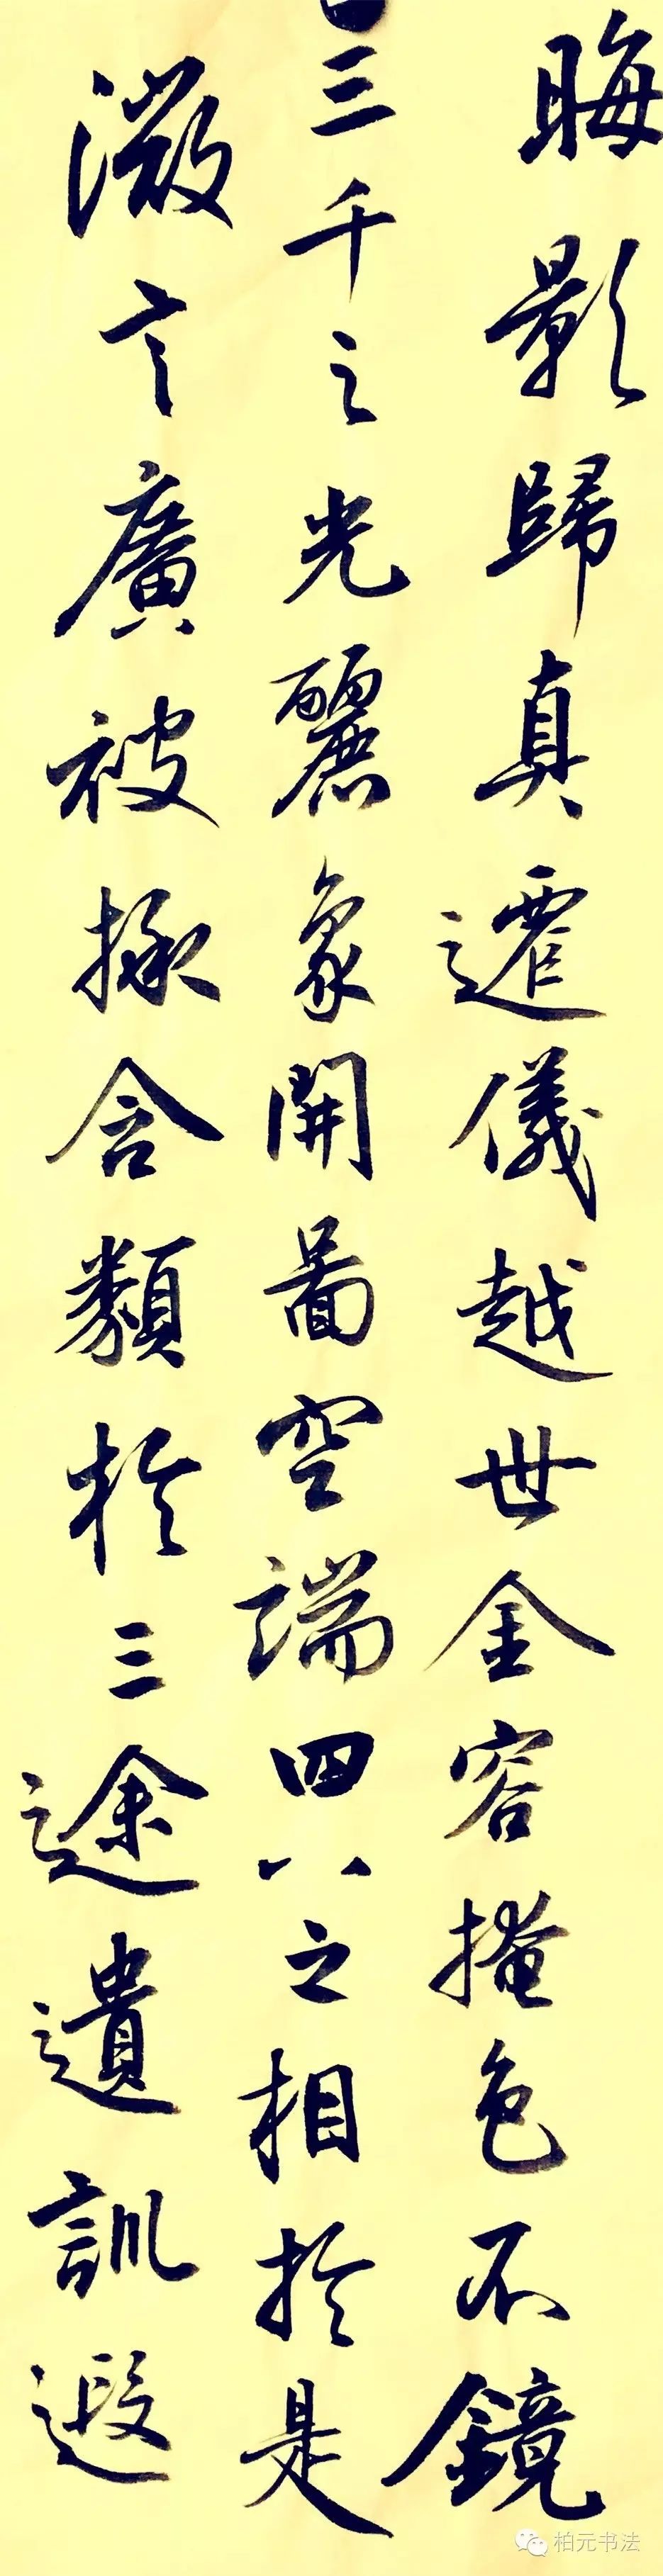 晦影歸真遷儀越世金容掩色不鏡
三千之光麗象開啚空端四八之相於是
微言廣被拯含類於三途遺訓遐
柏元书法